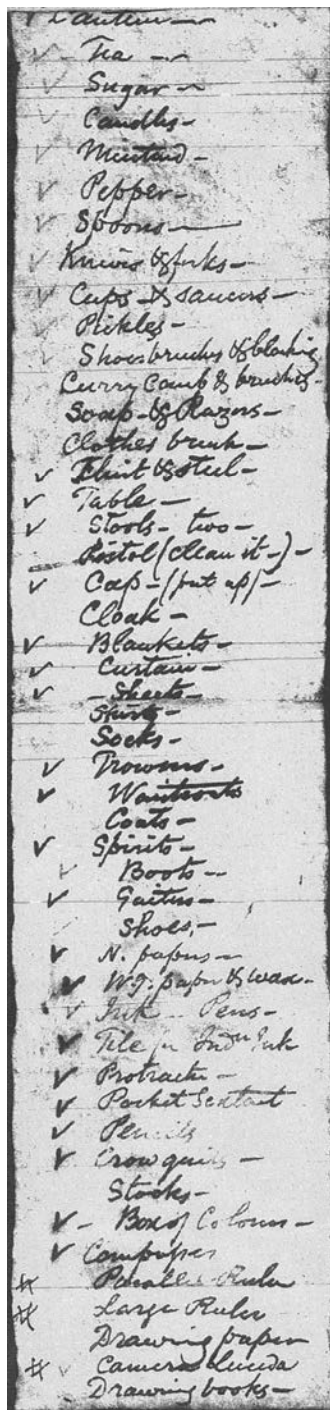 Canteen -
Tea -
Sugar -
Candles -
Mustard -
Pepper -
Spoons -
Knives & forks -
Cups - & saucers -
Pickles -
Shoe brushes & blacking
Curry Comb & brushes -
Soap - & Razors -
Clothes brush -
Flint & steel -
Table -
Stools - two -
Pistol (clean it -) -
Cap - (put up) -
Cloak -
Blankets -
Curtain -
- Sheets -
Shirts -
Socks -
Trowsers -
Waistcoats
Coats -
Spirits -
Boots -
Gaiters -
Shoes, -
N. papers -
Wg. paper & wax -
Ink - Pens -
Tile for Indn Ink
Protractor -
Pocket Sextant
Pencils
Crow quills -
Stocks -
- Box of Colours -
Compasses
Parallel Ruler
Large Ruler
Drawing paper
Camera Lucida
Drawing books -